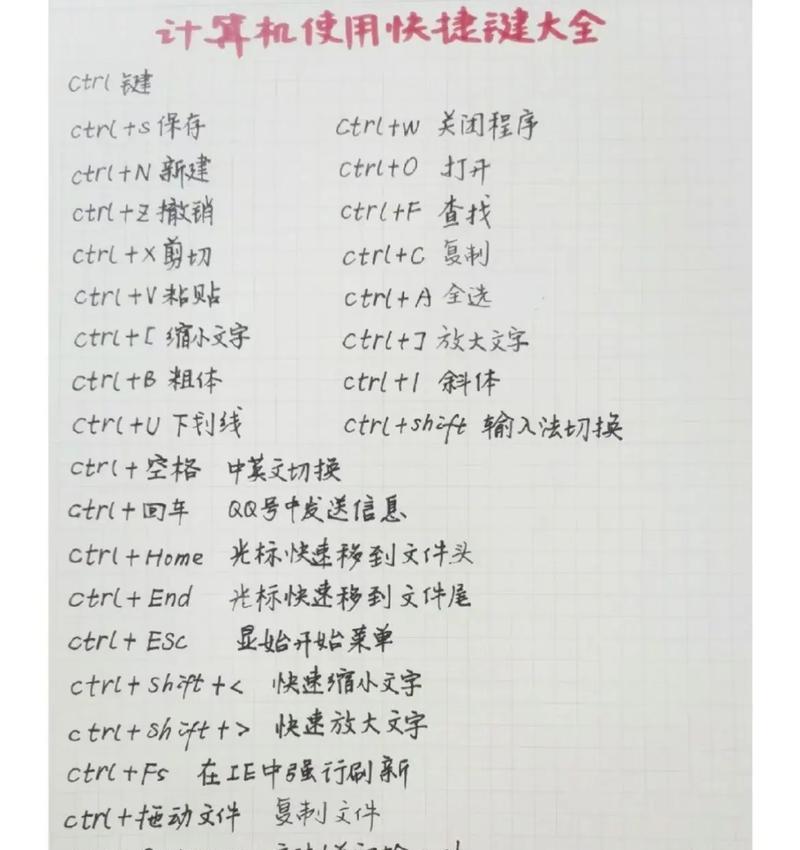 计算机使用快捷键大全
ctrl键
ctrl+s 保存 ctrl+w 关闭程序
ctrl+N 新建 ctrl+O 打开
ctrl+Z 撤销 ctrl+F 查找
ctrl+X 剪切 ctrl+C 复制
ctrl+V 粘贴 ctrl+A 全选
ctrl+[ 缩小文字 ctrl+] 放大文字
ctrl+B 粗体 ctrl+I 斜体
ctrl+U 下划线 ctrl+shift 输入法切换
ctrl+空格 中英文切换
ctrl+回车 QQ号中发送信息
ctrl+Home 光标快速移到文件头
ctrl+End 光标快速移到文件尾
ctrl+ESC 显始开始菜单
ctrl+shift+< 快速缩小文字
ctrl+shift+> 快速放大文字
ctrl+Fs 在IE中强行刷新
ctrl+拖动文件 复制文件